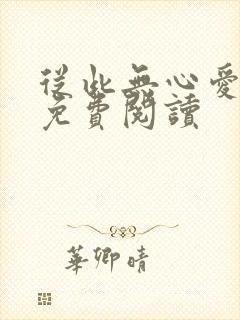 從此無心愛
免費閱讀
華卿晴